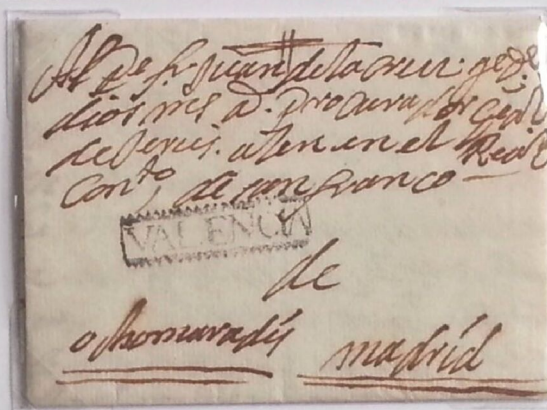 Al Pe fr. Juan de la cruz. gde. de
dios ms a. Procurador Genl
de Jeru. aten en el Real
Conto de san franco
VALENCIA
de
ochomaradis
madrid